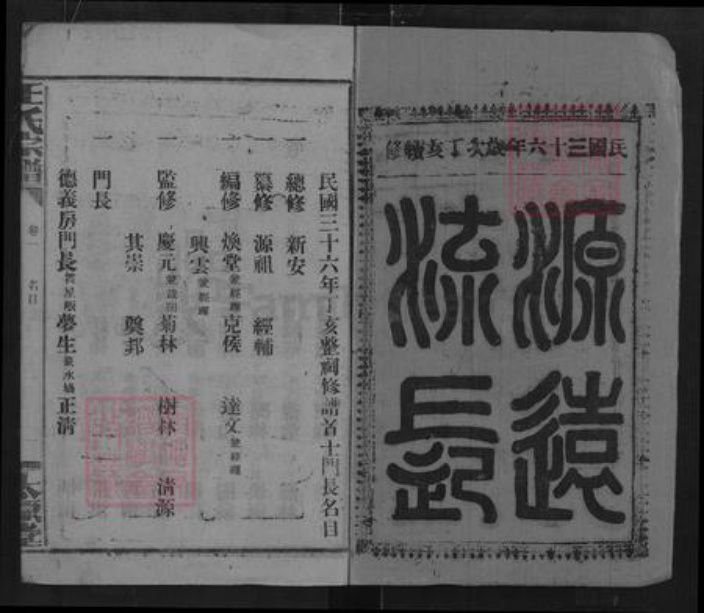 民國三十六年歲次丁亥續修
源遠
流長
民國三十六年丁亥整祠修譜首士門長名目
一 總修 新安
一 纂修 源祖 經輔
一 編修 煥堂兼經理 克俊 達文兼經理
興雲兼經理
一 監修 慶元 菊林 樹林 清源
其崇 奠邦
一 門長
德義房門長 夢生 正清
氏宗譜
卷一
名目